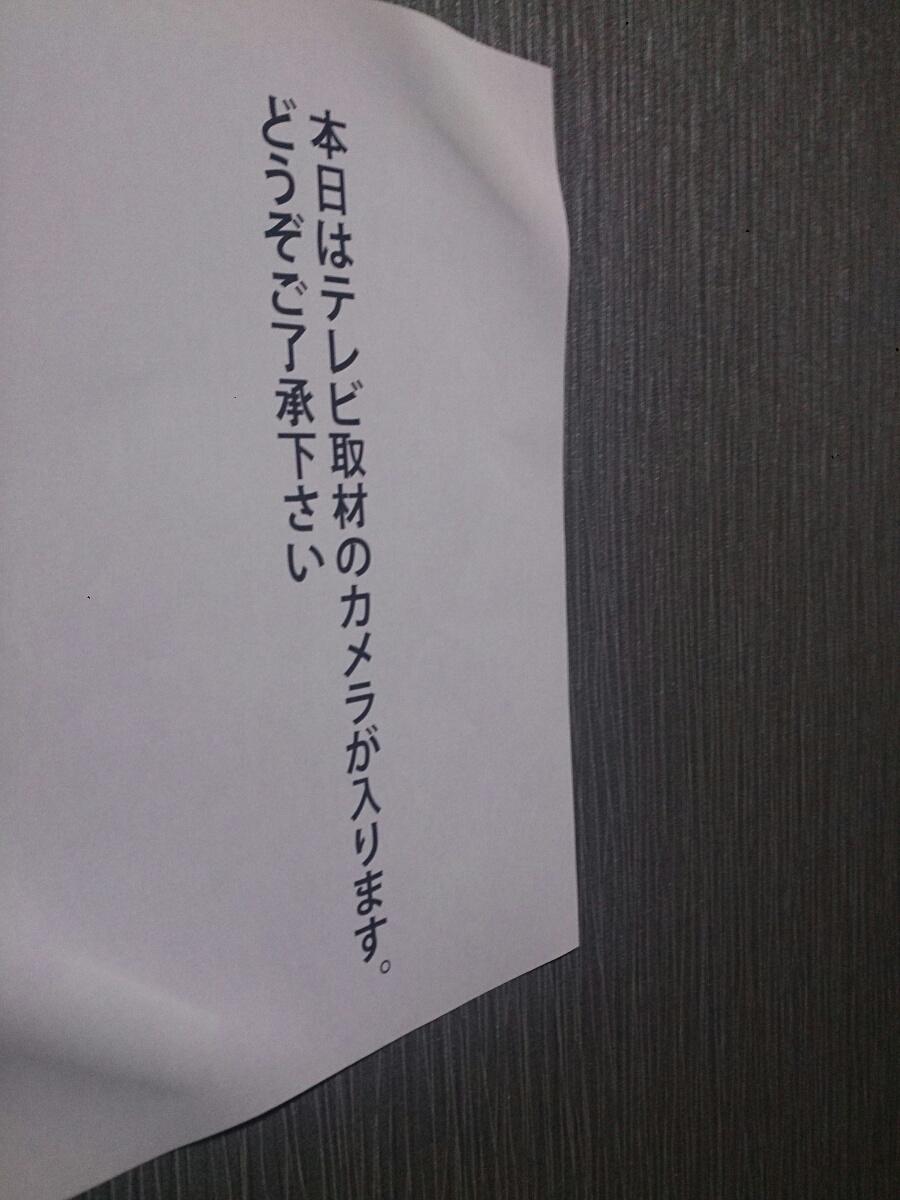 本日はテレビ取材のカメラが入ります。
どうぞご了承下さい